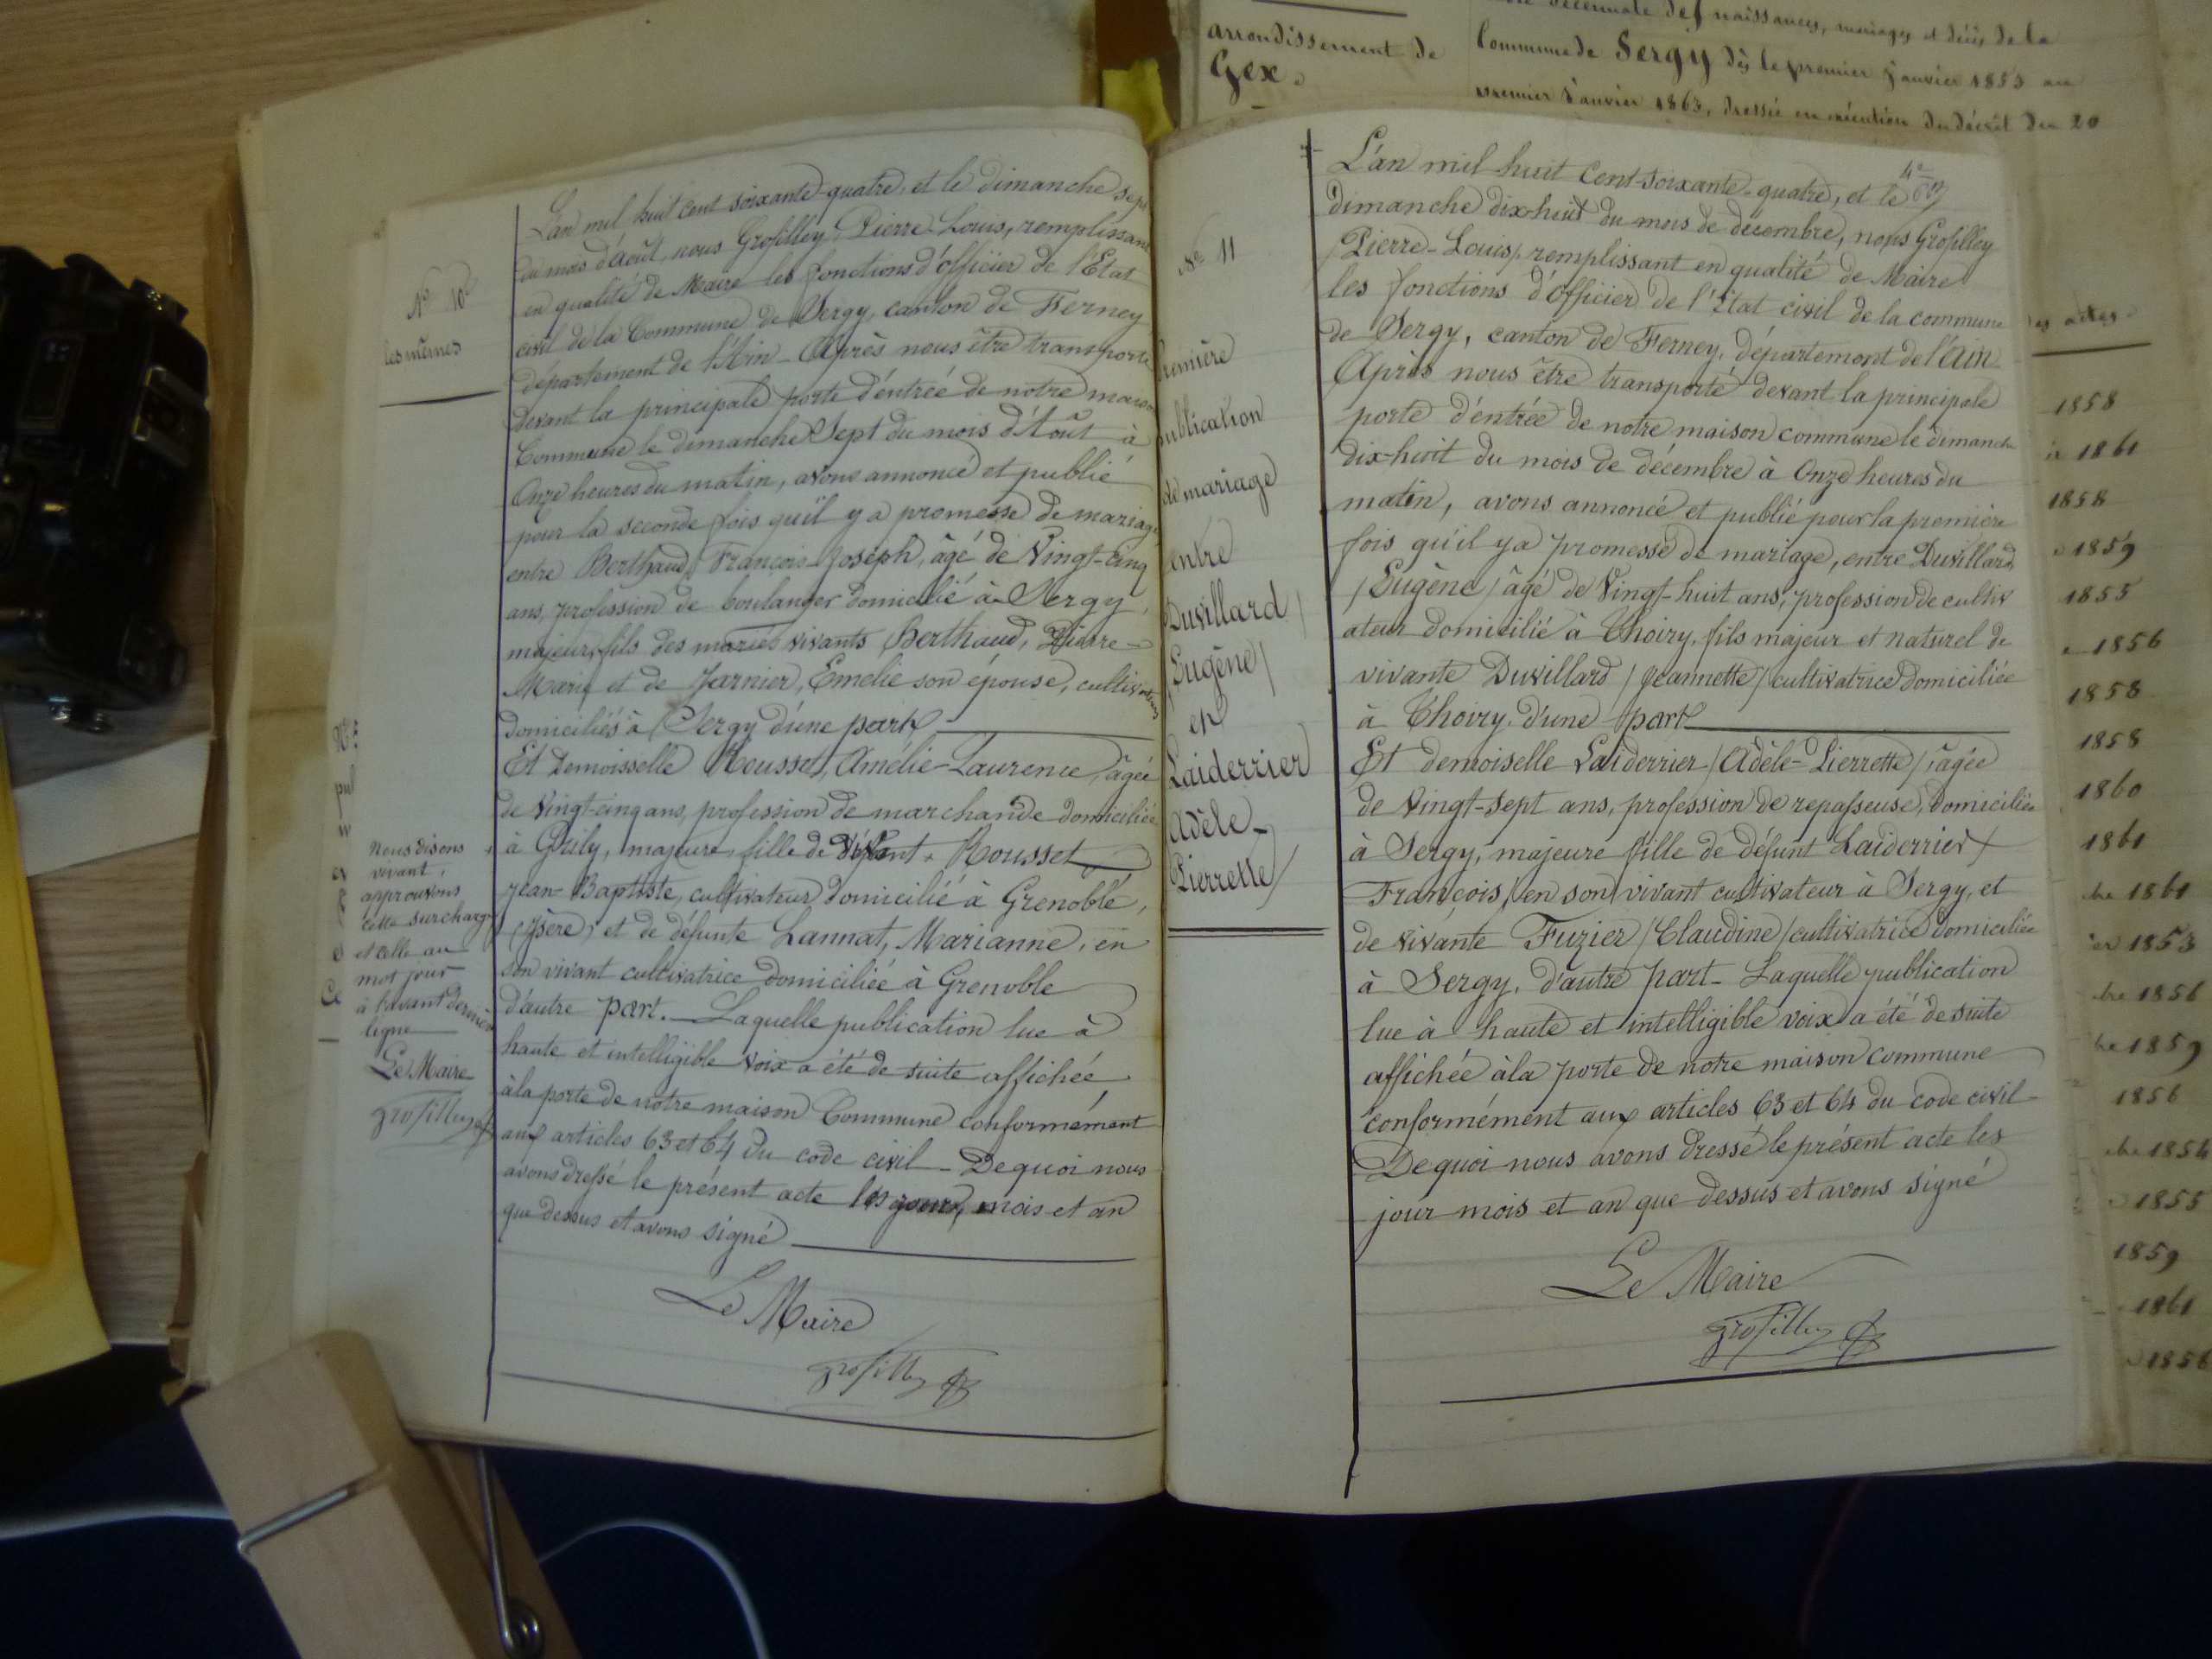 arrondissement de
Gex.
naissances, mariages et décès de la
Commune de Sergy dès le premier Janvier 1853 au
premier Janvier 1863, dressée en exécution du décret du 20
Nº 10
les mêmes
L'an mil huit cent soixante-quatre, et le dimanche sept
du mois d'Août, nous Grosfilley, Pierre-Louis, remplissant
en qualité de Maire les fonctions d'officier de l'Etat
civil de la Commune de Sergy, canton de Ferney
département de l'Ain - Après nous être transporté
devant la principale porte d'entrée de notre maison
Commune le dimanche Sept du mois d'Août à
Onze heures du matin, avons annoncé et publié
pour la seconde fois qu'il y a promesse de mariage
entre Berthaud, François Joseph, âgé de Vingt-cinq
ans, profession de boulanger domicilié à Sergy,
majeur, fils des mariés vivants Berthaud, Pierre-
Marie et de Jarnier, Emélie son épouse, cultivateurs
domiciliés à Sergy d'une part
Et Demoisselle Rousset, Amélie-Laurence, âgée
de Vingt-cinq ans, profession de marchande domiciliée
à Grily, majeure, fille de vivant + Rousset
Jean-Baptiste, cultivateur domicilié à Grenoble,
(Isère) et de défunte Lannat, Marianne, en
son vivant cultivatrice domiciliée à Grenoble
d'autre part. - Laquelle publication lue à
haute et intelligible voix a été de suite affichée
à la porte de notre maison Commune conformément
aux articles 63 et 64 du code civil - De quoi nous
avons dressé le présent acte les jour, mois et an
que dessus et avons signé
Le Maire
Grosfilley
Nous disons
vivant,
approuvons
cette surcharge
et celle au
mot jour
à l'avant dernière
ligne
Le Maire
Grosfilley
Nº 11
Première
publication
de mariage
entre
Duvillard /
Eugène /
et
Laiderrier
Adèle-
Pierrette /
L'an mil huit Cent-soixante-quatre, et le
dimanche dix-huit du mois de décembre, nous Grosfilley
/ Pierre-Louis / remplissant en qualité de Maire
les fonctions d'officier de l'Etat civil de la commune
de Sergy, canton de Ferney, département de l'Ain
Après nous être transporté devant la principale
porte d'entrée de notre maison commune le dimanche
dix-huit du mois de décembre à Onze heures du
matin, avons annoncé et publié pour la première
fois qu'il y a promesse de mariage, entre Duvillard
/ Eugène / âgé de Vingt-huit ans, profession de cultiv
ateur domicilié à Thoiry, fils majeur et naturel de
vivante Duvillard / Jeannette / cultivatrice domiciliée
à Thoiry d'une part
Et demoiselle Laiderrier / Adèle-Pierrette /, âgée
de Vingt-sept ans, profession de repasseuse, domiciliée
à Sergy, majeure fille de défunt Laiderrier /
François / en son vivant cultivateur à Sergy, et
de vivante Fuzier / Claudine / cultivatrice domiciliée
à Sergy, d'autre part - Laquelle publication
lue à haute et intelligible voix a été de suite
affichée à la porte de notre maison commune
conformément aux articles 63 et 64 du code civil -
De quoi nous avons dressé le présent acte les
jour mois et an que dessus et avons signé
Le Maire
Grosfilley
actes
1858
1861
1858
1859
1855
1856
1858
1858
1860
1861
1861
1853
1856
1859
1856
1854
1855
1859
1861
1856